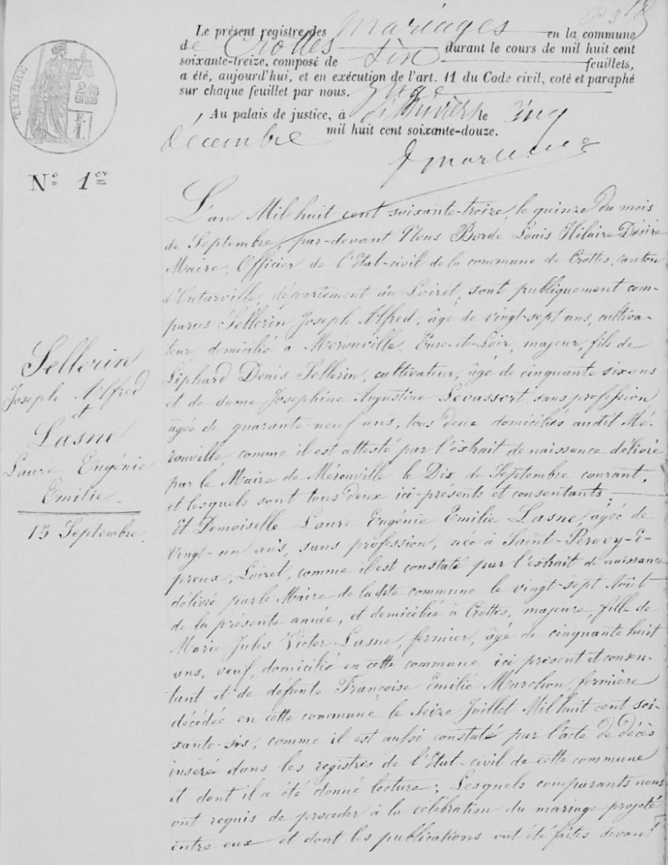 Le présent registre des mariages en la commune
de Crottes durant le cours de mil huit cent
soixante-treize, composé de six feuillets,
a été, aujourd'hui, et en exécution de l'art. 11 du Code civil, coté et paraphé
sur chaque feuillet par nous. Juge
Au palais de justice, à le cinq
décembre mil huit cent soixante-douze.
TIMBRE
N° 1er
L'an Mil huit cent soixante-treize, le quinze du mois
de Septembre, par-devant Nous Borde Louis Hilaire Désiré
Maire, Officier de l'Etat-civil de la commune de Crottes, canton
d'Outarville, département du Loiret, sont publiquement com-
parus Sellerin Joseph Alfred, âgé de vingt-sept ans, cultiva-
teur, domicilié à Merouville, Eure-et-Loir, majeur, fils de
Liphard Denis Sellerin, cultivateur, âgé de cinquante six ans
et de dame Josephine Augustine Levassort, sans profession
âgée de quarante-neuf ans, tous deux domiciliés audit Mé-
rouville comme il est attesté par l'extrait de naissance délivré
par le Maire de Mérouville le Dix de Septembre courant,
et lesquels sont tous deux ici-présents et consentants.
Et Demoiselle Laure Eugénie Emilie Lasne, âgée de
vingt-un ans, sans profession, née à Saint-Péravy-É-
preux, Loiret, comme il est constaté par l'extrait de naissance
délivré par le Maire de ladite commune le vingt-sept Août
de la présente année, et domiciliée à Crottes, majeure fille de
Marie Jules Victor Lasne, fermier, âgé de cinquante huit
ans, veuf, domicilié en cette commune ici présent et consen-
tant et de défunte Françoise Emilie Marchon, fermière
décédée en cette commune le Seize Juillet Mil huit cent soi-
xante-six, comme il est aussi constaté par l'acte de décès
inséré dans les registres de l'Etat-civil de cette commune
et dont il a été donné lecture; Lesquels comparants nous
ont requis de procéder à la célébration du mariage projeté
entre eux et dont les publications ont été faites devant
Sellerin
Joseph Alfred
et
Lasne
Laure Eugénie
Emilie
15 Septembre.